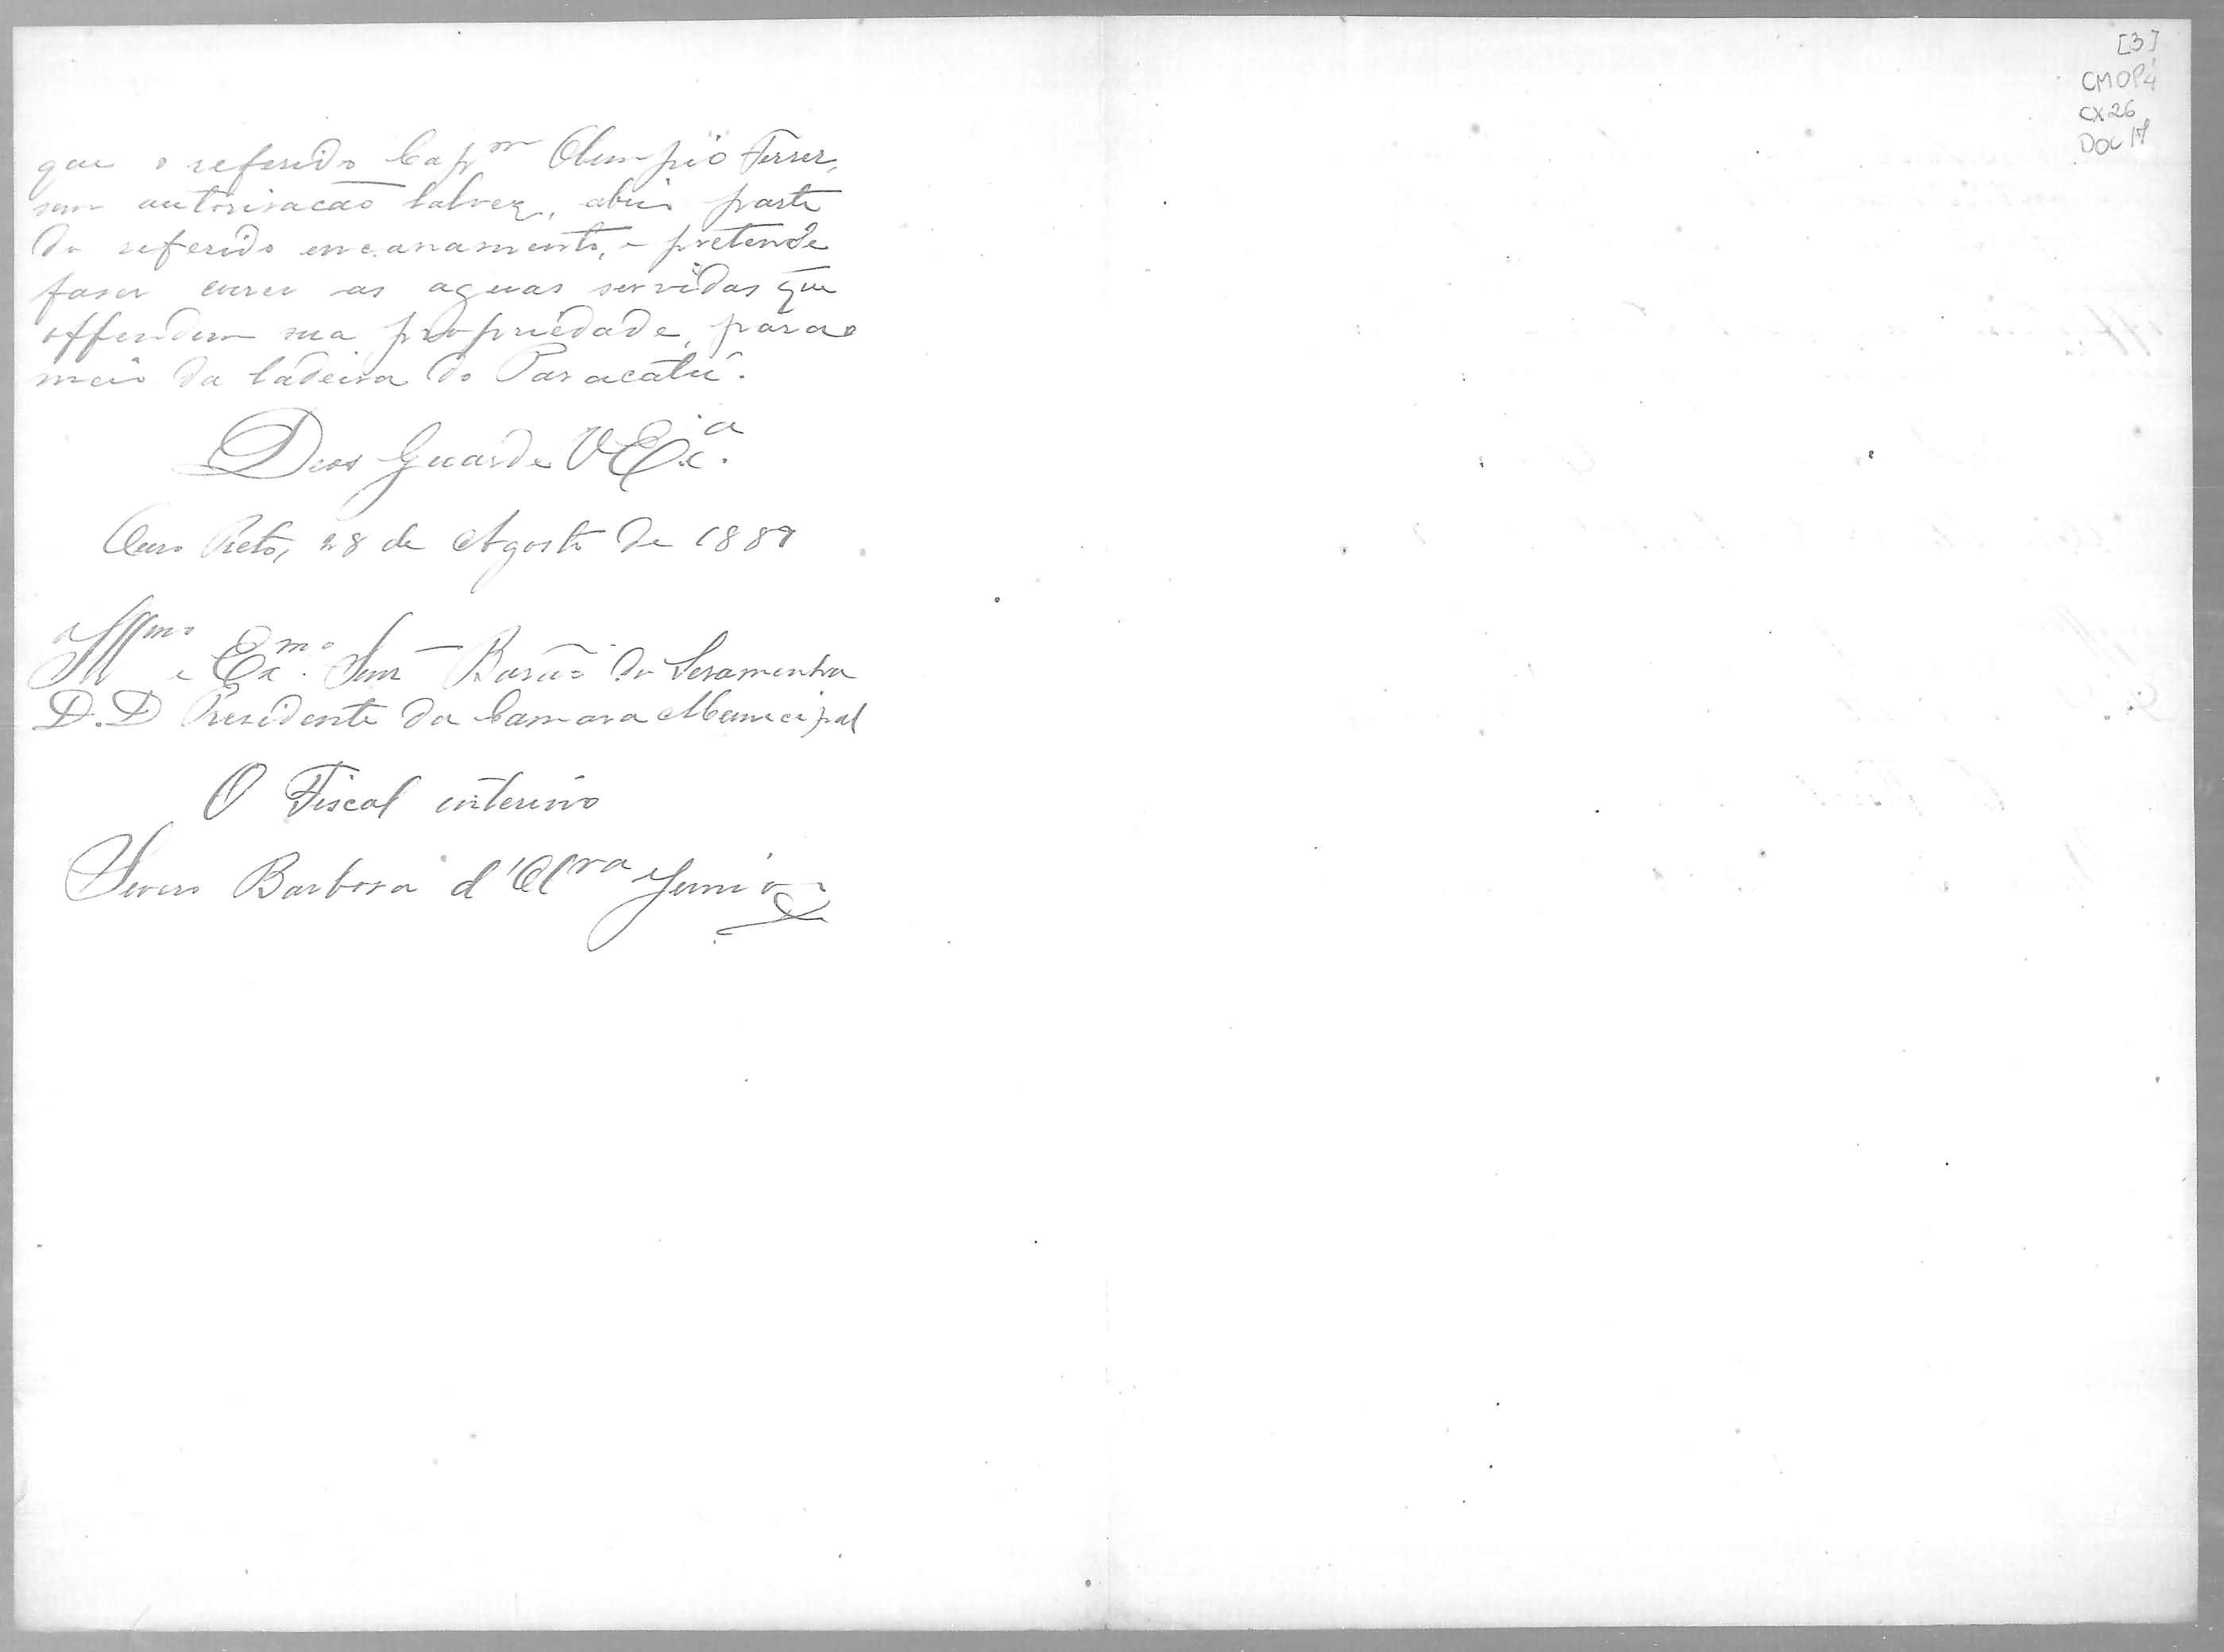 que o referido Cap.m Olimpio Ferrer,
sem autorisacão talvez, abrio parte
do referido encanamento, e pretende
faser correr as aguas servidas que
offendem sua propriedade, para o
meio da ladeira do Paracatú.
Deos Guarde V Ex.a
Ouro Preto, 28 de Agosto de 1889
Illmo e Ex.mo Snr Barão de Saramenha
D.D Presidente da Camara Municipal
O Fiscal interino
Severo Barbosa d'Olra Junior
[3]
CMOP4
CX26
DOC 17